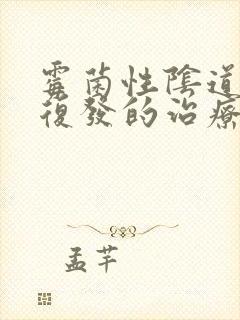 霉菌性陰道
復發的治療
孟芊